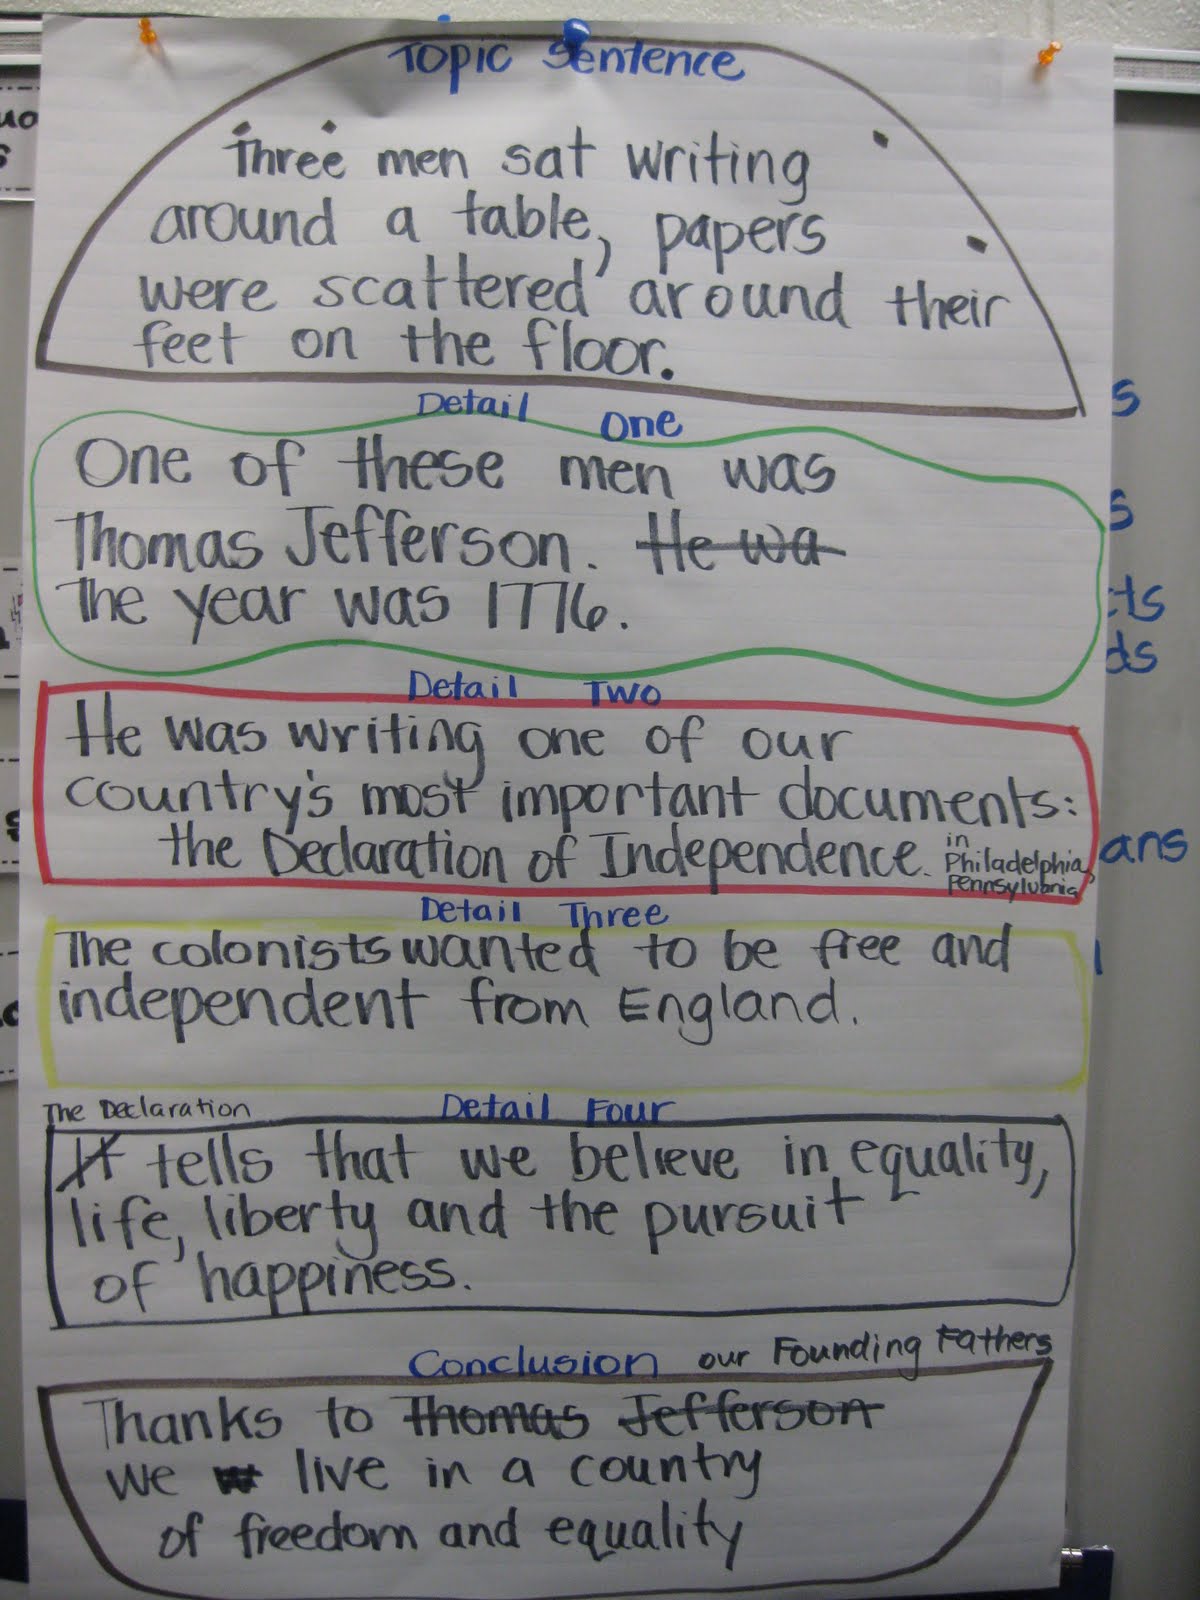 Topic Sentence
Three men sat writing
around a table, papers
were scattered around their
feet on the floor.
Detail One
One of these men was
Thomas Jefferson. He wa
The year was 1776.
Detail Two
He was writing one of our
country's most important documents:
the Declaration of Independence.
in
Philadelphia,
Pennsylvania
Detail Three
The colonists wanted to be free and
independent from England.
The Declaration
Detail Four
It tells that we believe in equality,
life, liberty and the pursuit
of happiness.
Conclusion
our Founding Fathers
Thanks to Thomas Jefferson
we live in a country
of freedom and equality